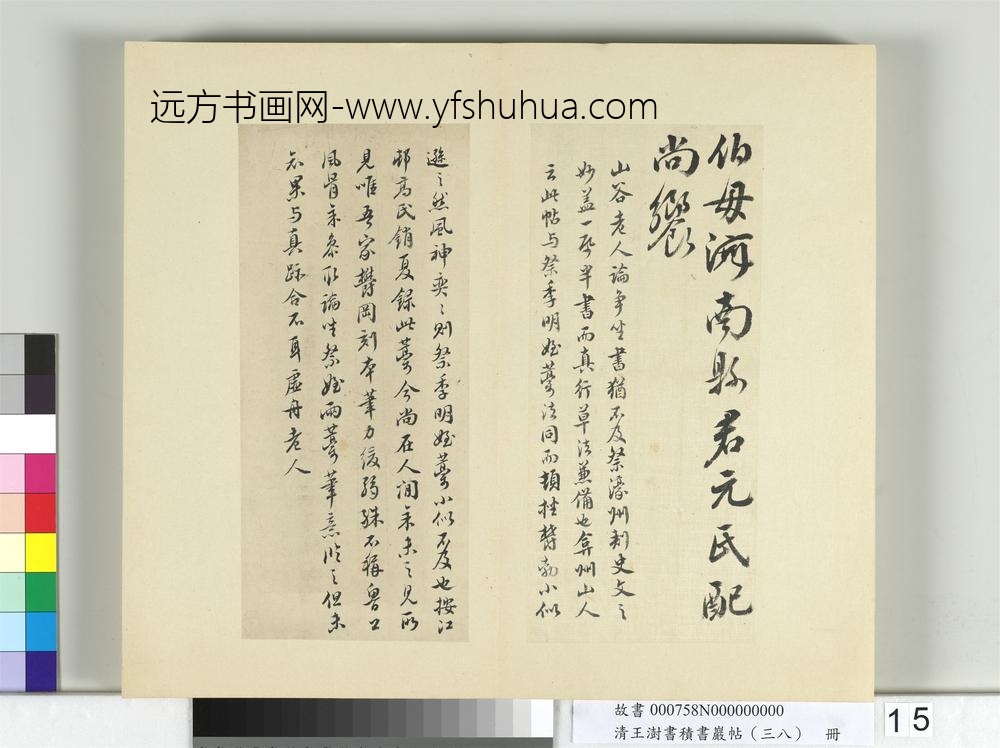 远方书画网-www.yfshuhua.com
伯母河南縣君元氏配
尚饗
山谷老人論爭坐書猶不及祭濠州刺史文之
妙盖一紙半書而真行草法兼備也弇州山人
云此帖与祭季明姪藁法同而頓挫鬱勃小似
遜之然風神奕〻則祭季明姪藁小似不及也按江
邨高氏銷夏錄此藁今尚在人間余未之見所
見唯吾家鬱岡刻本筆力緩弱殊不稱魯公
風骨余参取論坐祭姪兩藁筆意臨之但未
知果与真跡合不耳虛舟老人
故書 000758N000000000
清王澍書積書巖帖（三八） 冊
15